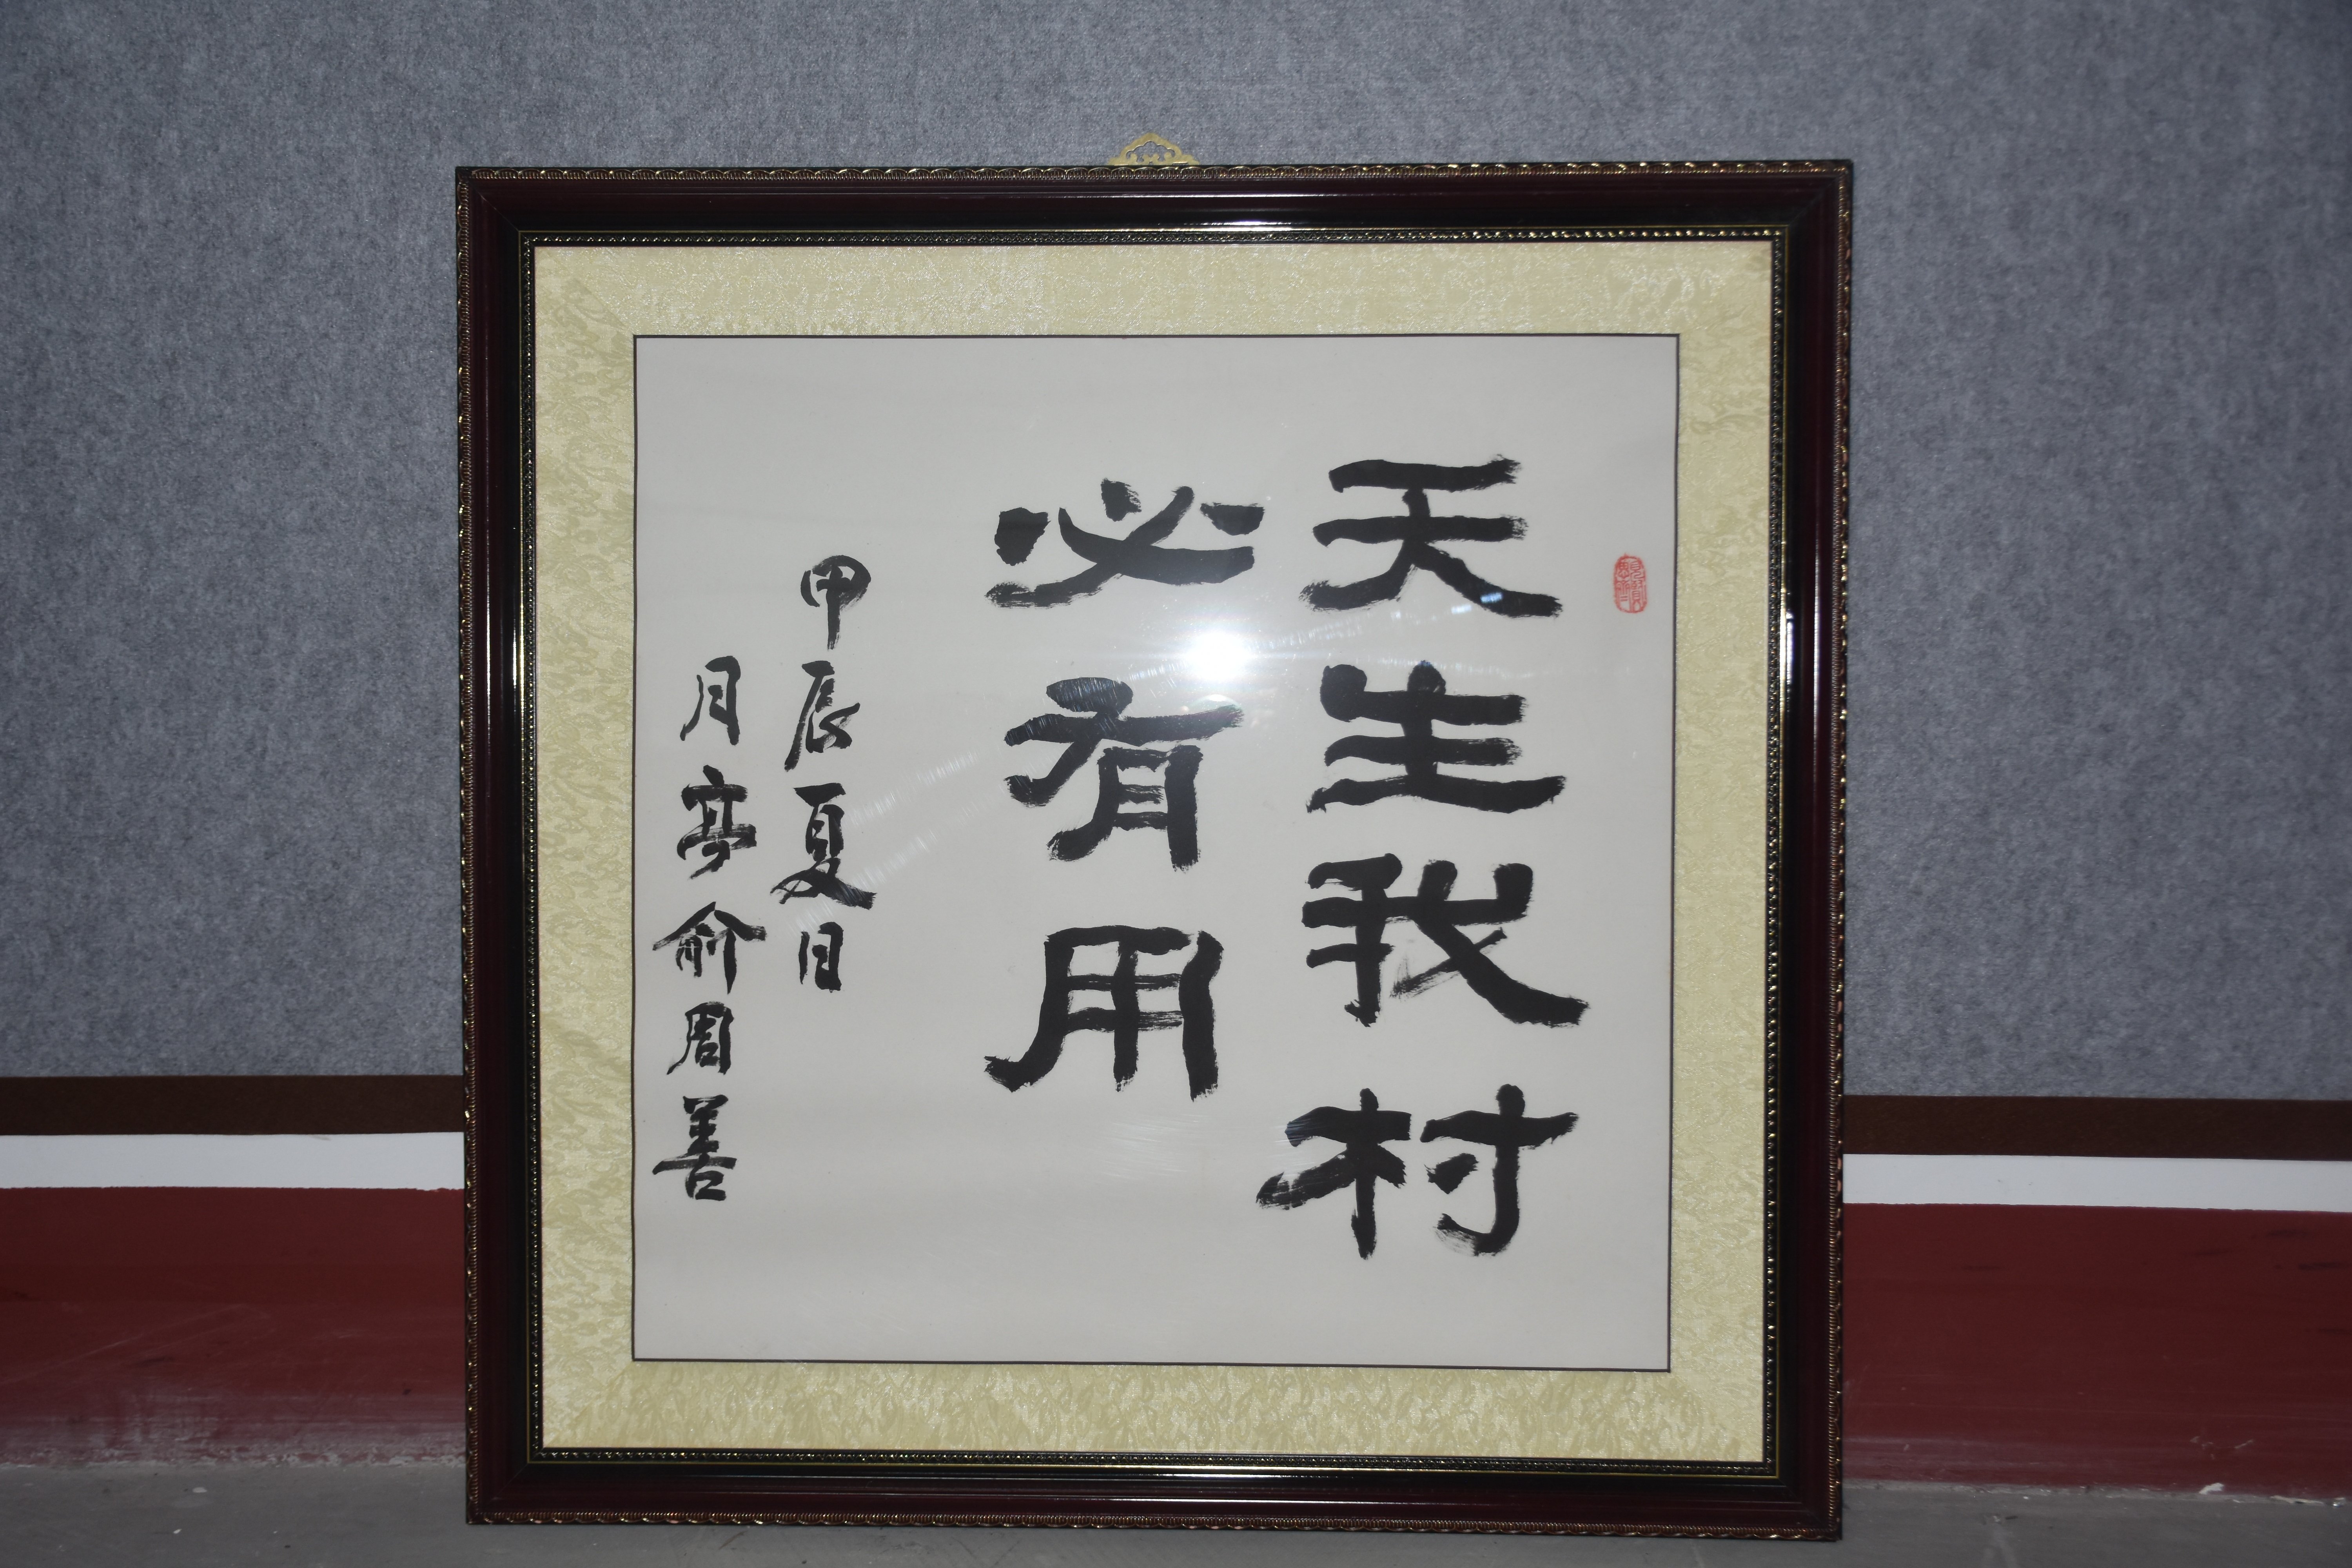 天生我村
必有用
甲辰夏日
月亭俞周善